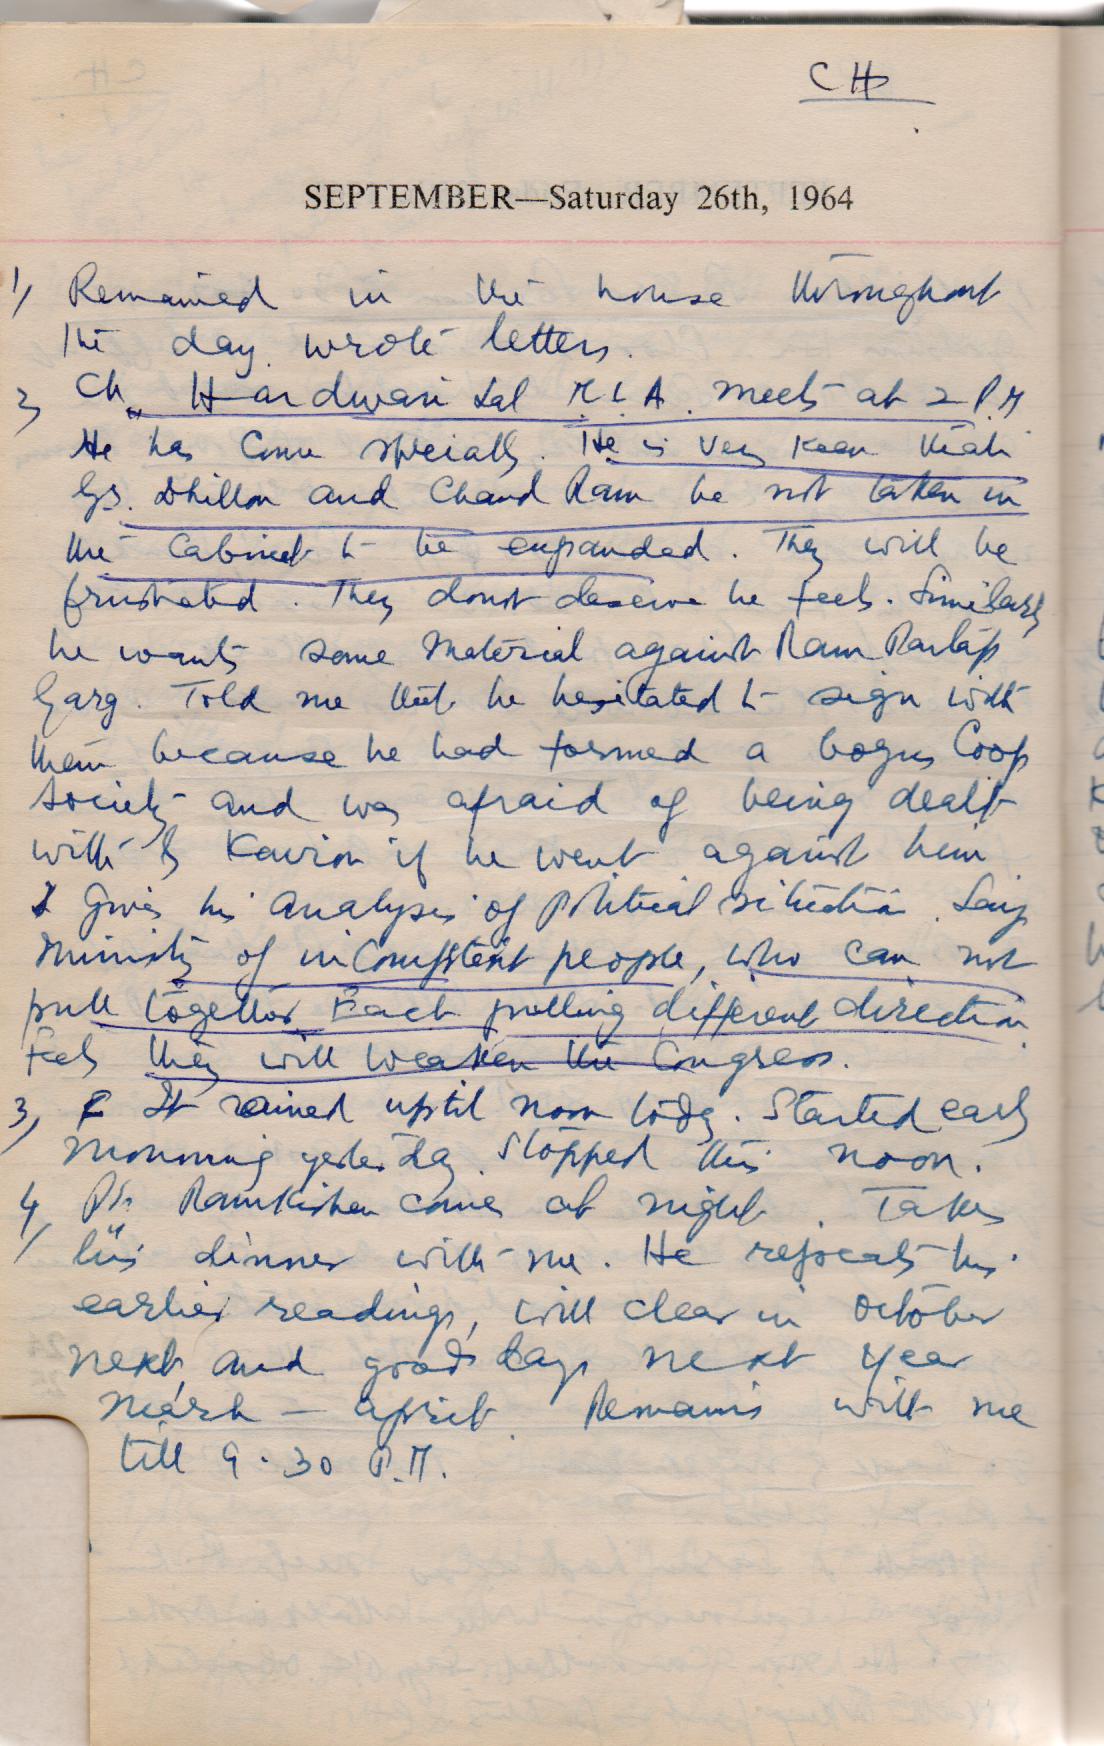 CH
SEPTEMBER—Saturday 26th, 1964
1/ Remained in the house throughout
the day. wrote letters.
2, Ch. Hardwari Lal M.L.A. meets at 2 P.M
He has Come specially. He is very Keen that
GS. Dhillon and Chand Ram be not taken in
the Cabinet to be expanded. They will be
frustrated. They donot deserve he feels. Similarly
he wants some Material against Ram Partap
Garg. Told me that he hesitated to sign with
them because he had formed a bogus Coop
Society and was afraid of being dealt
with by Kairon if he went against him
Gives his analysis of political situation. Says
Ministry of inCompetent people, who can not
pull together Each pulling different direction
Feels they will weaken the Congress.
3, It rained uptil noon today. Started early
morning yesterday. Stopped this noon.
4, Pt. Ramkishen comes at night. Takes
his dinner with me. He repeats his
earlier readings, will clear in October
next, and good days next year
March - April. Remains with me
till 9.30 P.M.